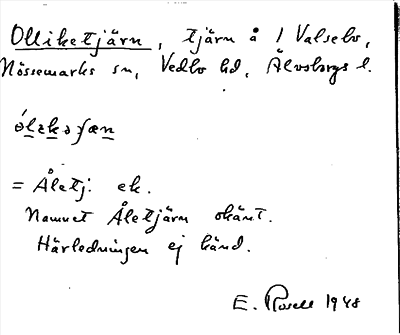 Olliketjärn, tjärn å 1 Valsebo,
Nössemarks sn, Vedbo hd, Älvsborgs l.
ólekəɟæn
= Åletj. ek.
Namnet Åletjärn okänt.
Härledningen ej känd.
E. Rosell 1948